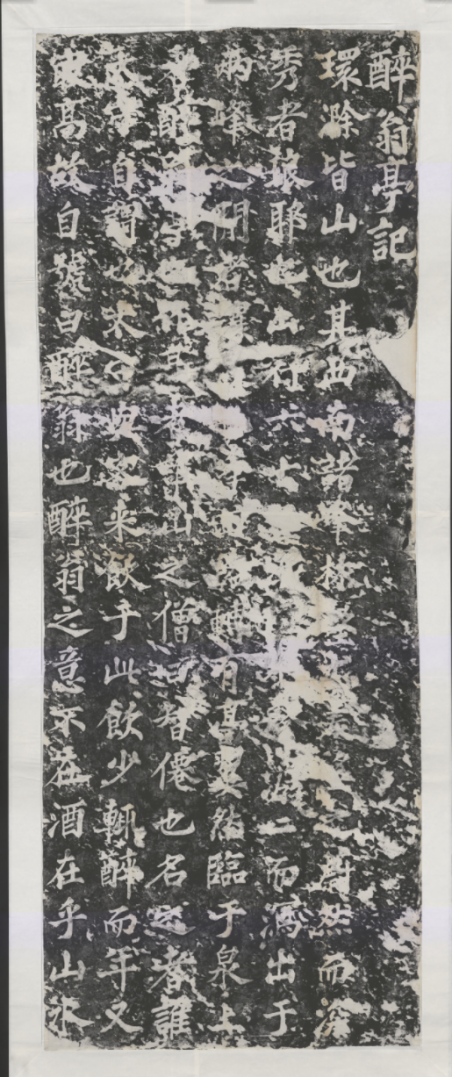 醉翁亭記
環滁皆山也其西南諸峰林壑之蔚然而深
秀者琅耶也山行六七而瀉出于
兩峰之間者轉有亭翼然臨于泉上
醉亭者山之僧曰智僊也名之者誰
太守自謂也太守與客来飲于此飲少輒醉而年又
最高故自號曰醉翁也醉翁之意不在酒在乎山水